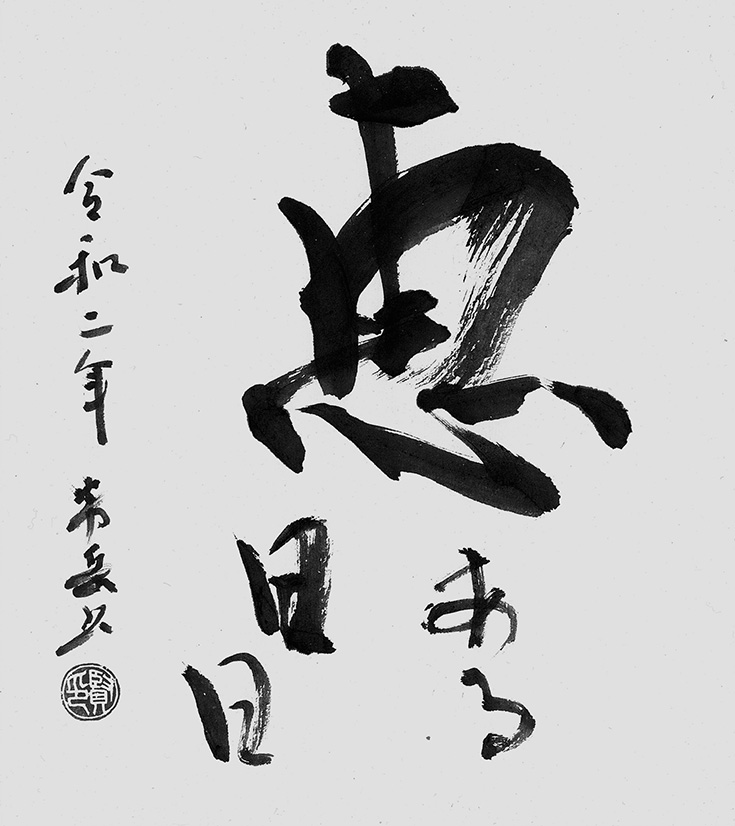 恵
ある
日日
令和二年